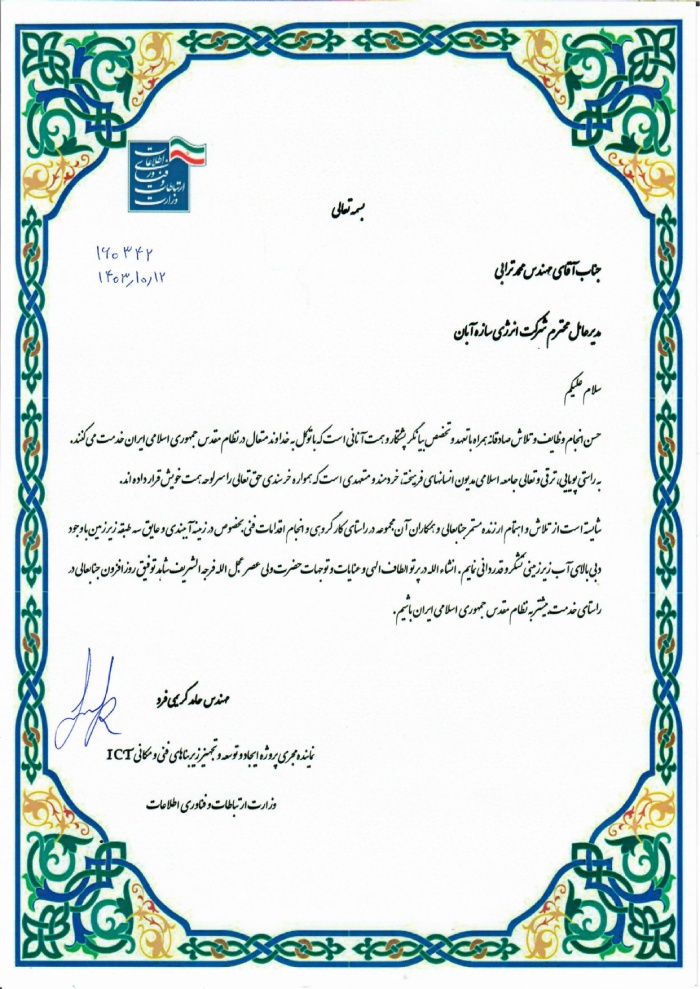 وزارت ارتباطات و فناوری اطلاعات
بسمه تعالی
۱۶۰۳۴۲
۱۴۰۳/۱۰/۱۲
جناب آقای مهندس محمد ترابی
مدیرعامل محترم شرکت انرژی سازه آبان
سلام علیکم
حسن انجام وظایف و تلاش صادقانه همراه با تعهد و تخصص بیانگر پشتکار و همت آنانی است که با توکل به خداوند متعال در نظام مقدس جمهوری اسلامی ایران خدمت می کنند.
به راستی پویایی، ترقی و تعالی جامعه اسلامی مدیون انسانهای فرهیخته، خردمند و متعهدی است که همواره خرسندی حق تعالی را سرلوحه همت خویش قرار داده اند.
شایسته است از تلاش و اهتمام ارزنده مستمر جنابعالی و همکاران آن مجموعه در راستای کار گروهی و انجام اقدامات فنی بخصوص در زمینه آببندی و عایق سه طبقه زیرزمین با وجود
دبی بالای آب زیرزمینی تشکر و قدردانی نمایم. انشاء الله در پرتو الطاف الهی و عنایات و توجهات حضرت ولی عصر عجل الله فرجه الشریف شاهد توفیق روز افزون جنابعالی در
راستای خدمت بیشتر به نظام مقدس جمهوری اسلامی ایران باشیم.
مهندس حامد کریمی فرد
نماینده مجری پروژه ایجاد و توسعه و تجهیز زیربناهای فنی و مکانی ICT
وزارت ارتباطات و فناوری اطلاعات